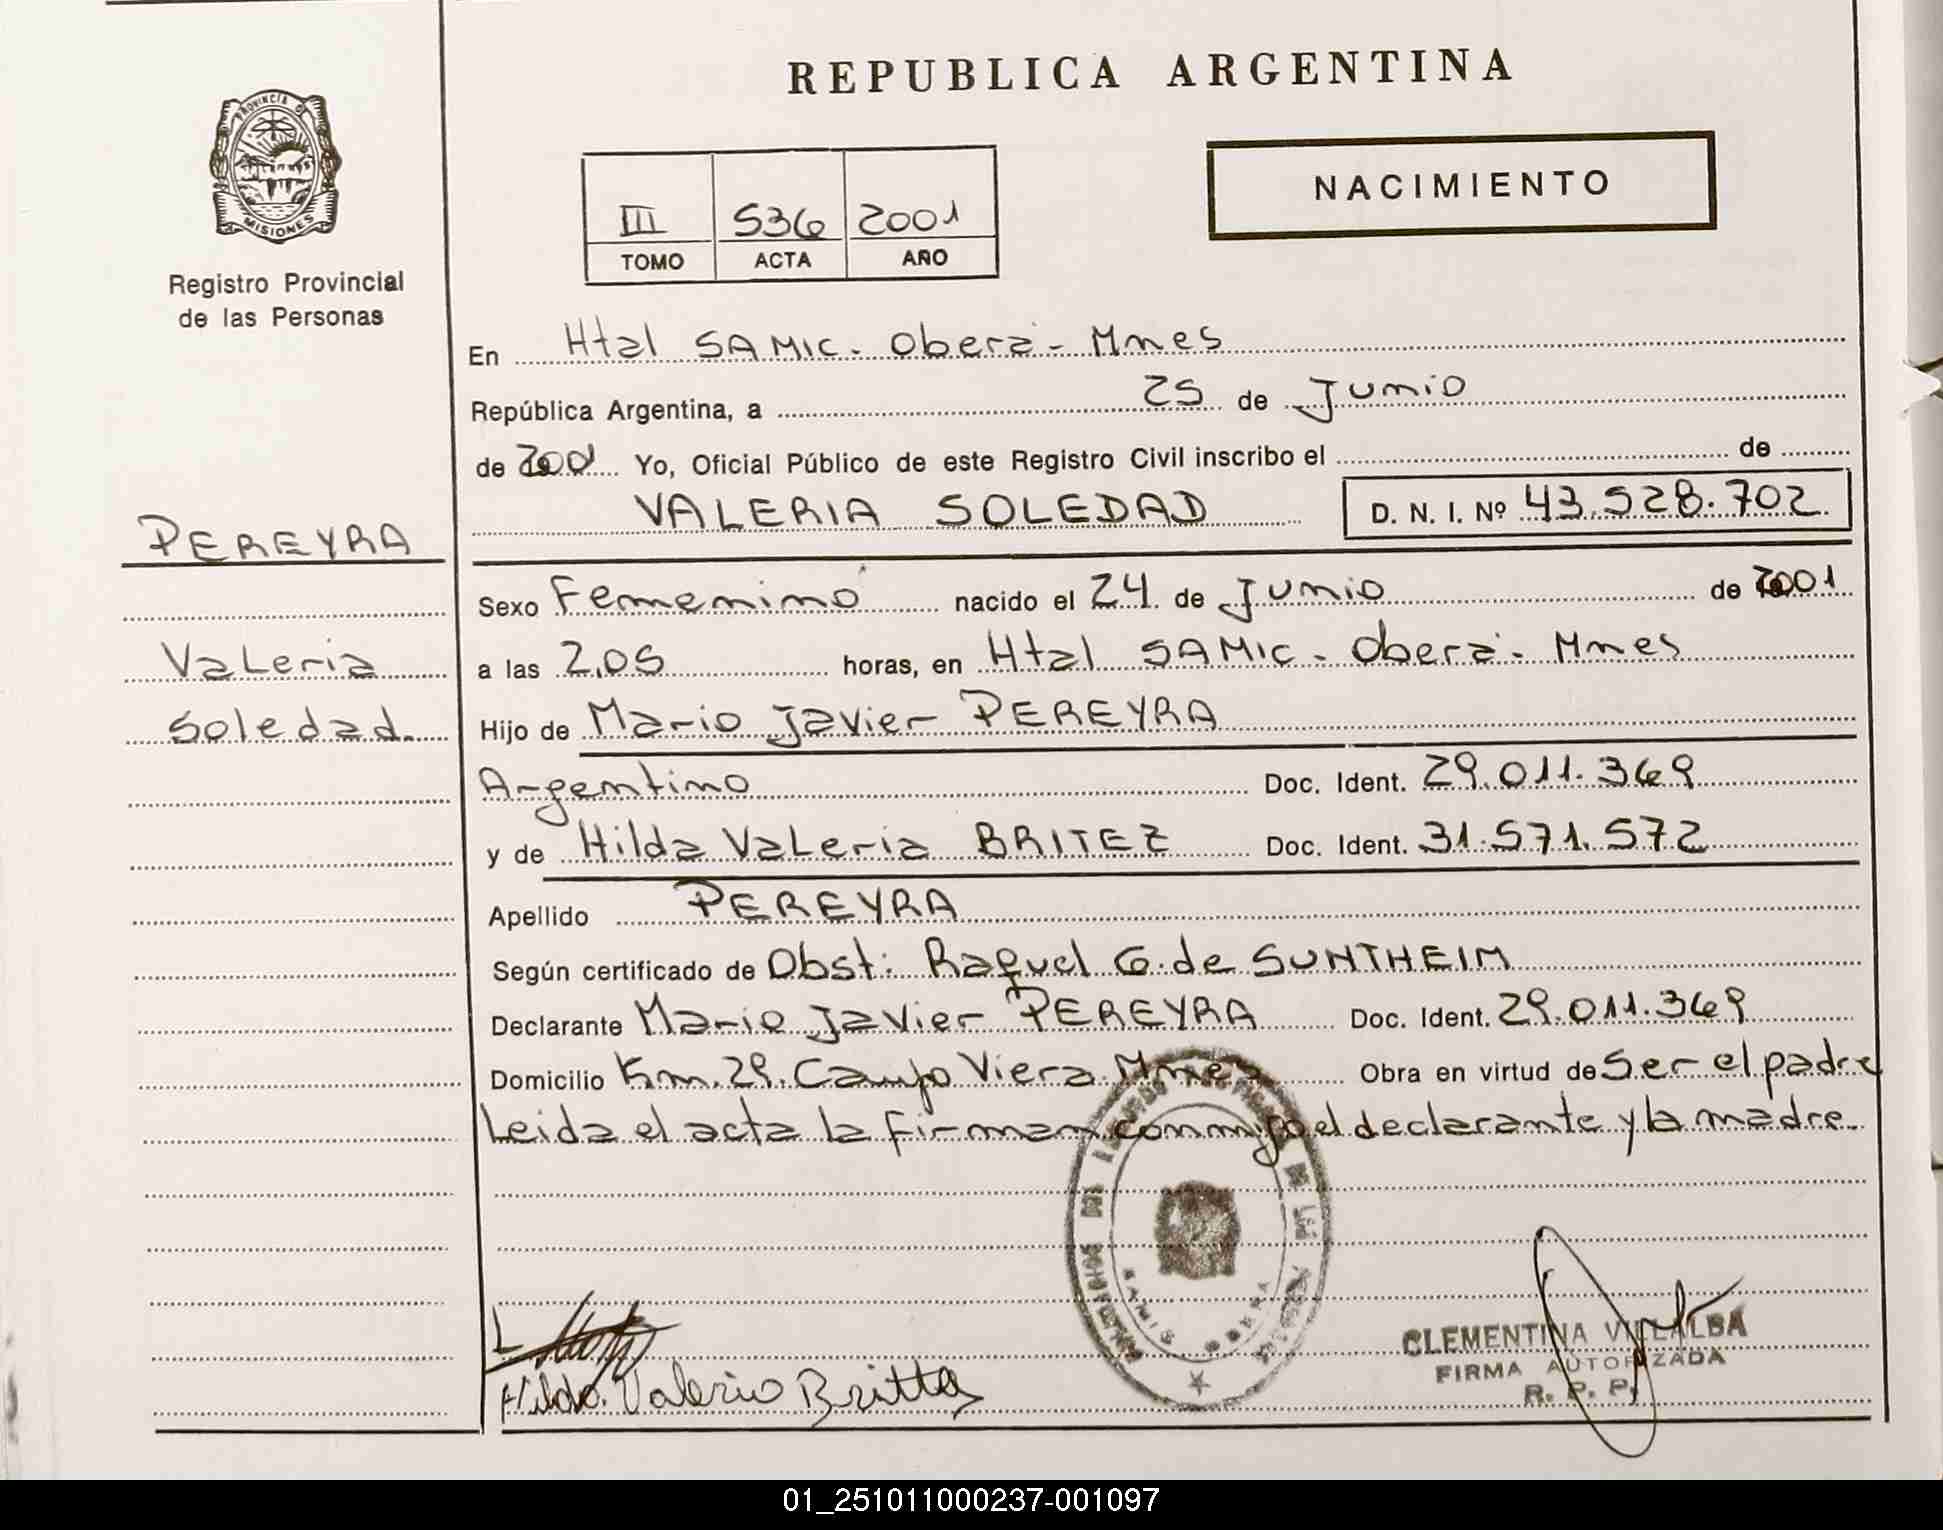 REPUBLICA ARGENTINA
PROVINCIA DE
MISIONES
Registro Provincial
de las Personas
III 536 2001
TOMO ACTA AÑO
NACIMIENTO
En Htal SAMIC. Oberá - Mnes
República Argentina, a 25 de Junio
de 2001 Yo, Oficial Público de este Registro Civil inscribo el de
VALERIA SOLEDAD D. N. I. Nº 43.528.702
PEREYRA
Valeria
Soledad.
Sexo Femenino nacido el 24 de Junio de 2001
a las 2,05 horas, en Htal SAMIC - Oberá - Mnes
Hijo de Mario Javier PEREYRA
Argentino Doc. Ident. 29.011.369
y de Hilda Valeria BRITEZ Doc. Ident. 31.571.572
Apellido PEREYRA
Según certificado de Obst: Raquel G. de SUNTHEIM
Declarante Mario Javier PEREYRA Doc. Ident. 29.011.369
Domicilio Km. 29. Campo Viera Mnes Obra en virtud de Ser el padre
Leida el acta la firman conmigo el declarante y la madre.
Hilda Valeria Brittez
CLEMENTINA VILLALBA
FIRMA AUTORIZADA
R. P. P.
01_251011000237-001097